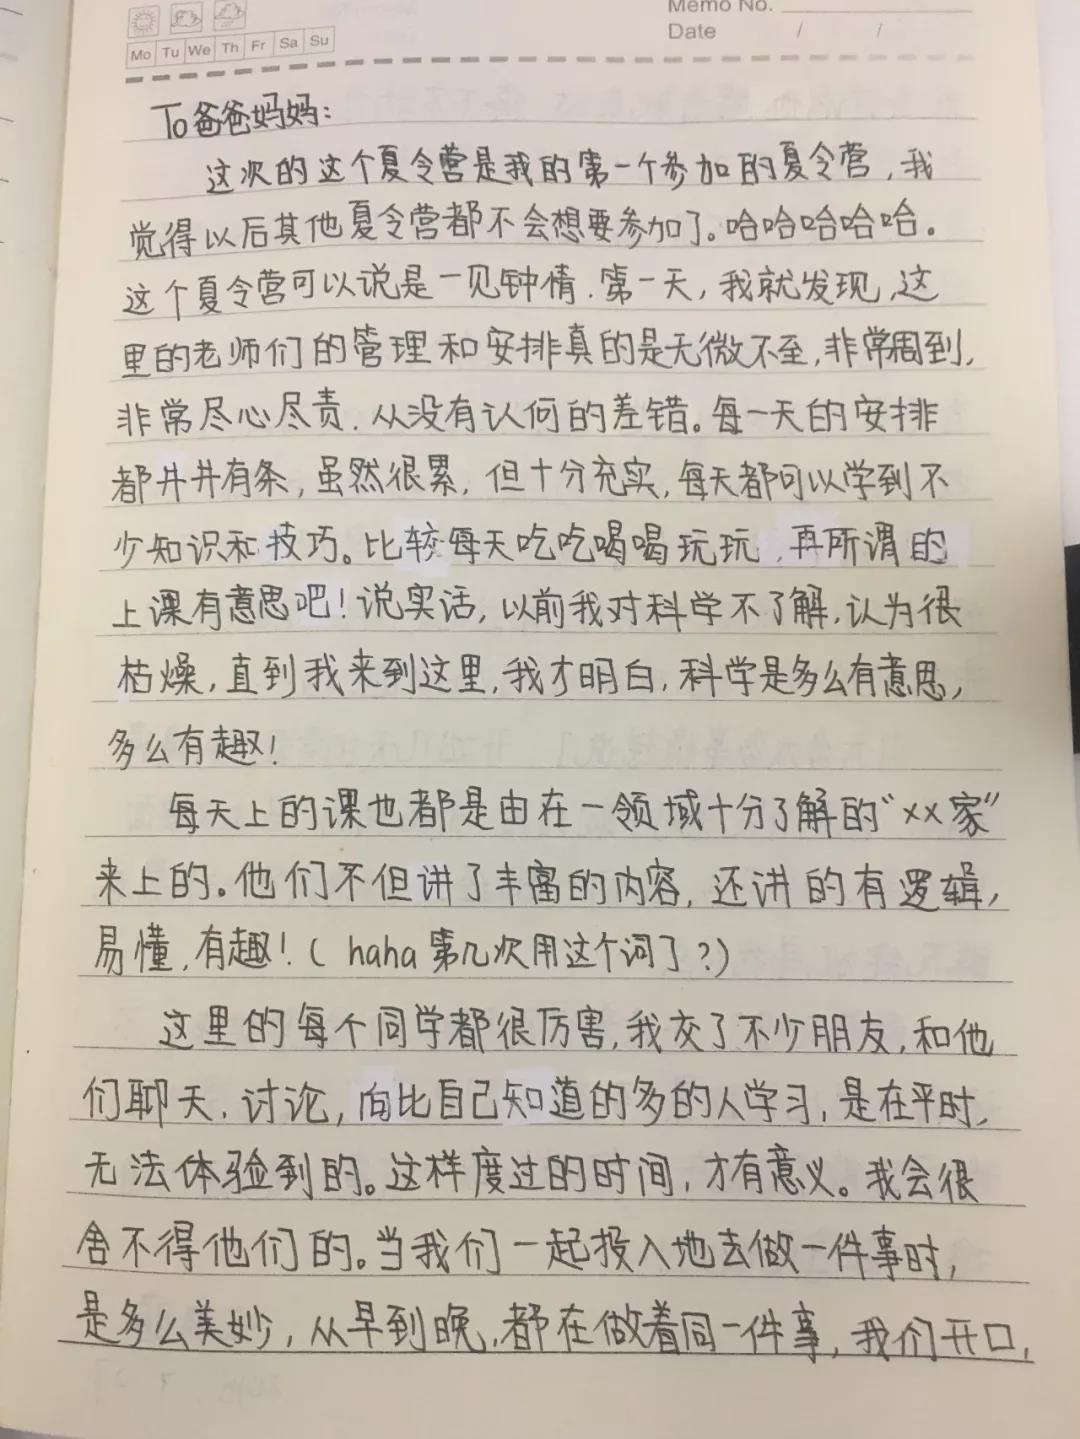 Memo No.
Mo Tu We Th Fr Sa Su
Date / /
To爸爸妈妈:
这次的这个夏令营是我的第一个参加的夏令营,我
觉得以后其他夏令营都不会想要参加了。哈哈哈哈哈。
这个夏令营可以说是一见钟情.第一天,我就发现,这
里的老师们的管理和安排真的是无微不至,非常周到,
非常尽心尽责.从没有认何的差错。每一天的安排
都井井有条,虽然很累,但十分充实,每天都可以学到不
少知识和技巧。比较每天吃吃喝喝玩玩,再所谓的
上课有意思吧!说实话,以前我对科学不了解,认为很
枯燥,直到我来到这里,我才明白,科学是多么有意思,
多么有趣!
每天上的课也都是由在一领域十分了解的“××家”
来上的。他们不但讲了丰富的内容,还讲的有逻辑,
易懂,有趣!(haha第几次用这个词了?)
这里的每个同学都很厉害,我交了不少朋友,和他
们聊天,讨论,向比自己知道的多的人学习,是在平时,
无法体验到的。这样度过的时间,才有意义。我会很
舍不得他们的。当我们一起投入地去做一件事时,
是多么美妙,从早到晚,都在做着同一件事,我们开口,